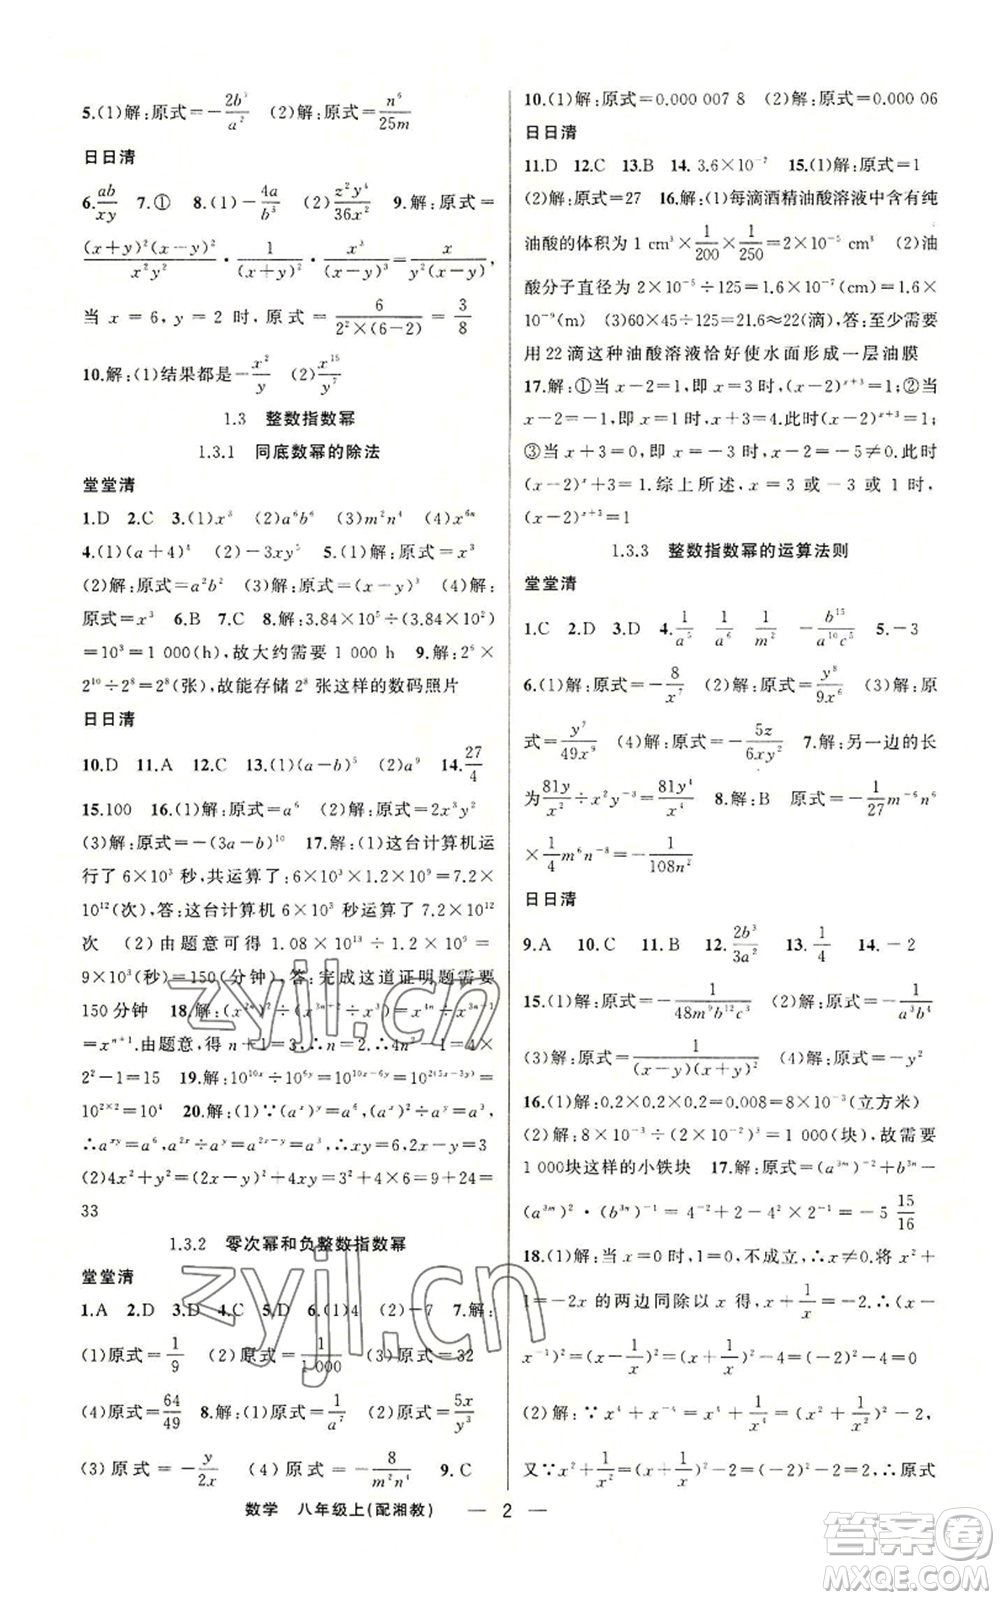 5.(1)解:原式=-2b³/a² (2)解:原式=n⁶/25m
日日清
6.ab/xy 7.① 8.(1)-4a/b³ (2)z²y⁴/36x² 9.解:原式=
(x+y)²(x-y)²/x²y² · 1/(x+y)² · x³/(x-y)³ = x/y²(x-y),
当 x=6,y=2 时,原式=6/2²×(6-2)=3/8
10.解:(1)结果都是-x²/y (2)x¹⁵/y⁷
1.3 整数指数幂
1.3.1 同底数幂的除法
堂堂清
1.D 2.C 3.(1)x³ (2)a⁶b⁶ (3)m²n⁴ (4)x⁶ⁿ
4.(1)(a+4)⁴ (2)-3xy⁵ 5.(1)解:原式=x⁴
(2)解:原式=a²b² (3)解:原式=(x-y)³ (4)解:
原式=x³ 6.B 7.C 8.解:3.84×10⁵÷(3.84×10²)
=10³=1 000(h),故大约需要 1 000 h 9.解:2⁶×
2¹⁰÷2⁸=2⁸(张),故能存储 2⁸ 张这样的数码照片
日日清
10.D 11.A 12.C 13.(1)(a-b)⁵ (2)a⁹ 14.27/4
15.100 16.(1)解:原式=a⁶ (2)解:原式=2x³y²
(3)解:原式=-(3a-b)¹⁰ 17.解:(1)这台计算机运
行了 6×10³ 秒,共运算了 6×10³×1.2×10⁹=7.2×
10¹²(次),答:这台计算机 6×10³ 秒运算了 7.2×10¹²
次 (2)由题意可得 1.08×10¹³÷(1.2×10⁹)=
9×10³(秒)=150(分钟),答:完成这道证明题需要
150分钟 18.解:(x²ⁿ)²÷(x³ⁿ⁺²÷x³)=x⁴ⁿ÷x³ⁿ⁻¹
=xⁿ⁺¹.由题意,得 n+1=3,∴n=2,∴4n²-1=4×
2²-1=15 19.解:10¹⁰ˣ÷10⁶ʸ=10¹⁰ˣ⁻⁶ʸ=10²⁽⁵ˣ⁻³ʸ⁾=
10²ˣ²=10⁴ 20.解:(1)∵(aˣ)ʸ=a⁶,(aˣ)²÷aʸ=a³,
∴aˣʸ=a⁶,a²ˣ÷aʸ=a²ˣ⁻ʸ=a³,∴xy=6,2x-y=3
(2)4x²+y²=(2x-y)²+4xy=3²+4×6=9+24=
33
1.3.2 零次幂和负整数指数幂
堂堂清
1.A 2.D 3.D 4.C 5.D 6.(1)4 (2)-7 7.解:
(1)原式=1/9 (2)原式=1/1 000 (3)原式=32
(4)原式=64/49 8.解:(1)原式=1/a⁷ (2)原式=5x/y³
(3)原式=-y/2x (4)原式=-8/m²n⁴ 9.C
10.(1)解:原式=0.000 007 8 (2)解:原式=0.000 06
日日清
11.D 12.C 13.B 14.3.6×10⁻⁷ 15.(1)解:原式=1
(2)解:原式=27 16.解:(1)每滴酒精油酸溶液中含有纯
油酸的体积为 1 cm³×1/200×1/250=2×10⁻⁵(cm³) (2)油
酸分子直径为 2×10⁻⁵÷125=1.6×10⁻⁷(cm)=1.6×
10⁻⁹(m) (3)60×45÷125=21.6≈22(滴),答:至少需要
用 22 滴这种油酸溶液恰好使水面形成一层油膜
17.解:①当 x-2=1,即 x=3 时,(x-2)ˣ⁺³=1;②当
x-2=-1,即 x=1 时,x+3=4.此时(x-2)ˣ⁺³=1;
③当 x+3=0,即 x=-3 时,x-2=-5≠0.此时
(x-2)ˣ+3=1.综上所述,x=3 或-3 或 1 时,
(x-2)ˣ⁺³=1
1.3.3 整数指数幂的运算法则
堂堂清
1.C 2.D 3.D 4.1/a⁵ 1/a⁶ 1/m² -b¹⁵/a¹⁰c⁵ 5.-3
6.(1)解:原式=-8/x⁷ (2)解:原式=y⁸/9x⁶ (3)解:原
式=y⁷/49x⁹ (4)解:原式=-5z/6xy² 7.解:另一边的长
为81y/x²÷x²y⁻³=81y⁴/x⁴ 8.解:B 原式=-1/27m⁻⁶n⁶
×1/4m⁶n⁻⁸=-1/108n²
日日清
9.A 10.C 11.B 12.2b³/3a² 13.1/4 14.-2
15.(1)解:原式=-1/48m⁹b¹²c³ (2)解:原式=-1/a³b⁴
(3)解:原式=1/(x-y)(x+y)² (4)解:原式=-y²
16.(1)解:0.2×0.2×0.2=0.008=8×10⁻³(立方米)
(2)解:8×10⁻³÷(2×10⁻²)³=1 000(块),故需要
1 000块这样的小铁块 17.解:原式=(a³ᵐ)⁻²+b³ᵐ-
(a³ᵐ)²·(b³ᵐ)²=4⁻²+2-4²×2⁻¹=-5 15/16
18.(1)解:当 x=0 时,x²+1≠-2x,∴x≠0,将 x²+
1=-2x 的两边同除以 x 得,x+1/x=-2.∴(x-
x⁻¹)²=(x-1/x)²=(x+1/x)²-4=(-2)²-4=0
(2)解:∵x⁴+x⁻⁴=x⁴+1/x⁴=(x²+1/x²)²-2,
又∵x²+1/x²=(x+1/x)²-2=(-2)²-2=2,∴原式
数学 八年级上(配湘教) — 2 —
zyjl.cn
zyjl.cn
答案圈
MXQE.COM